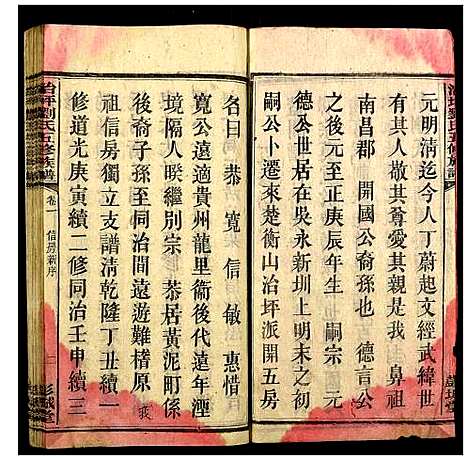 元明清迄今人丁蔚起文經武緯世
不乏人皆其尊愛其親是我 鼻祖
南昌郡 開國公裔孫也 德言公
之後元元至正庚辰年生 嗣宗 嗣元
德公世居在吳永新圳上明末之初
嗣公卜遷來楚衡山冶坪派開五房
冶坪劉氏五修族譜
卷一 信房新序
彭城堂
名曰 恭 寬 信 敏 惠惜
寬公遠適貴州龍里衛後代遠年湮
境隔人睽繼別宗 恭居黃泥町係
後裔子孫至同治間遠遊難稽原 我
祖信房獨立支譜清乾隆丁丑續一
修道光庚寅續二修同治壬申續三